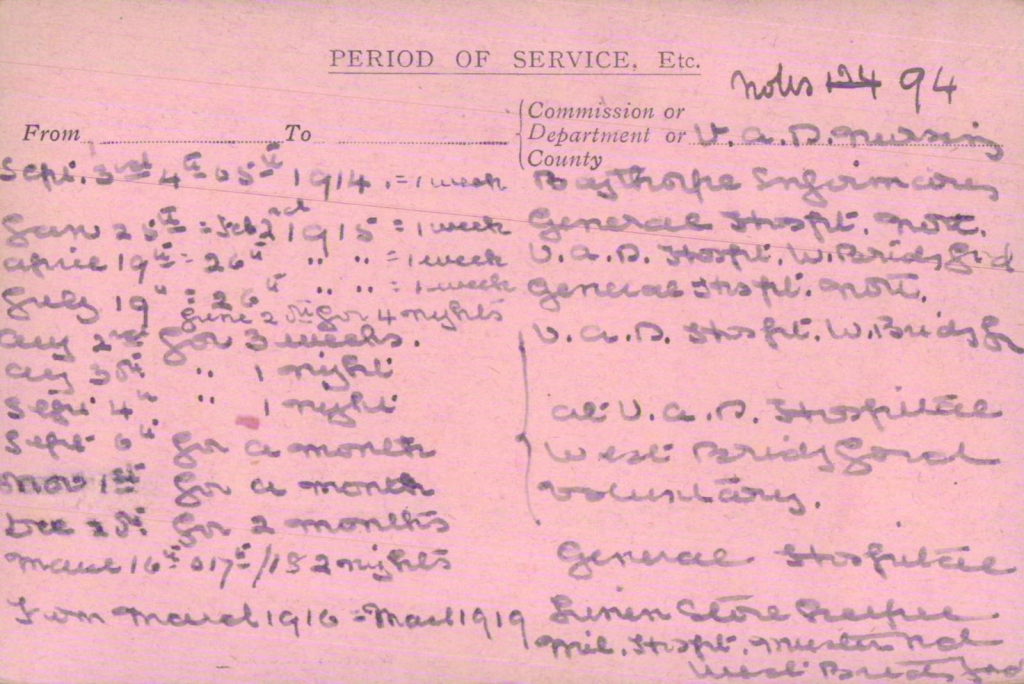 PERIOD OF SERVICE, Etc.
Notts 124 94
From To Commission or Department or County V.A.D. Nursing
Sept. 3rd 4th 5th 1914. = 1 week Bagthorpe Infirmary
Jan 25th = Feb 2nd 1915 = 1 week General Hospt. Nott.
April 19th = 26th " " = 1 week V.A.D. Hospt. W. Bridgford
July 19th = 26th " " = 1 week General Hospt. Nott.
June 2 for 4 nights
Aug 2nd for 3 weeks. V.A.D. Hospt. W. Bridgford
Aug 30th " 1 night
Sept 4th " 1 night at V.A.D. Hospital
Sept 6th for a month West Bridgford
Nov 1st for a month voluntary.
Dec 20th for 2 months
March 16th 17th /15 2 nights General Hospital
From March 1916 = March 1919 Linen Store Keeper
Mil. Hospt. Musters Rd
West Bridgford